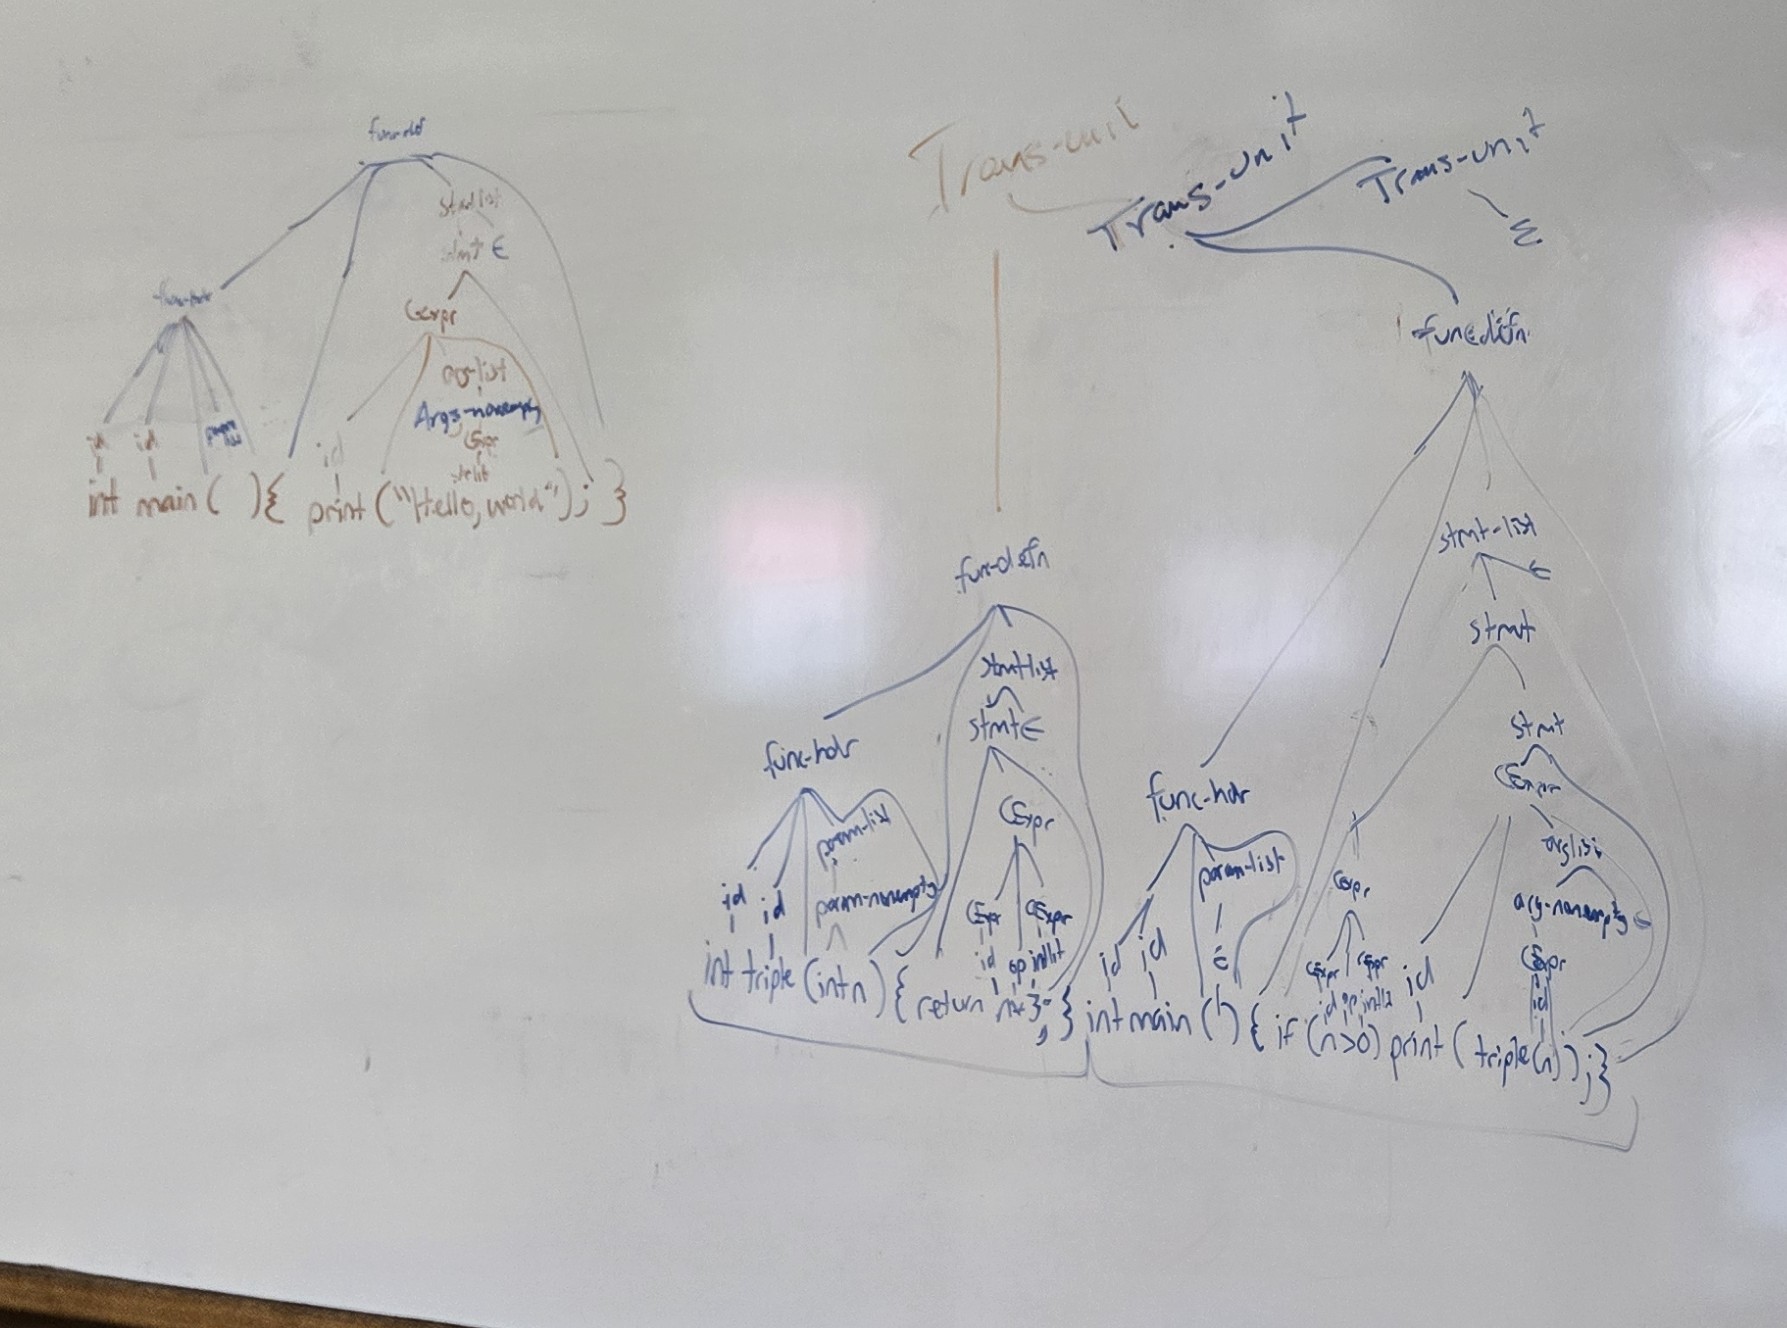 Trans-unit
Trans-unit
Trans-unit
ε
stmt ε
Cexpr
arg-list
Args-nonempty
Cexpr
strlit
id id id
int main ( ) { print ("Hello, world"); }
func-defn
stmt-list
stmt ε
func-hdr
param-list
param-nonempty
CExpr
CExpr CExpr
id id id op intlit
int triple (int n) { return n*3; }
func-defn
stmt-list
ε
stmt
stmt
CExpr
func-hdr
param-list
ε
arglist
arg-nonempty ε
Cexpr
CExpr
id
id id
id op intlit
id
int main ( ) { if (n>0) print ( triple(n) ); }